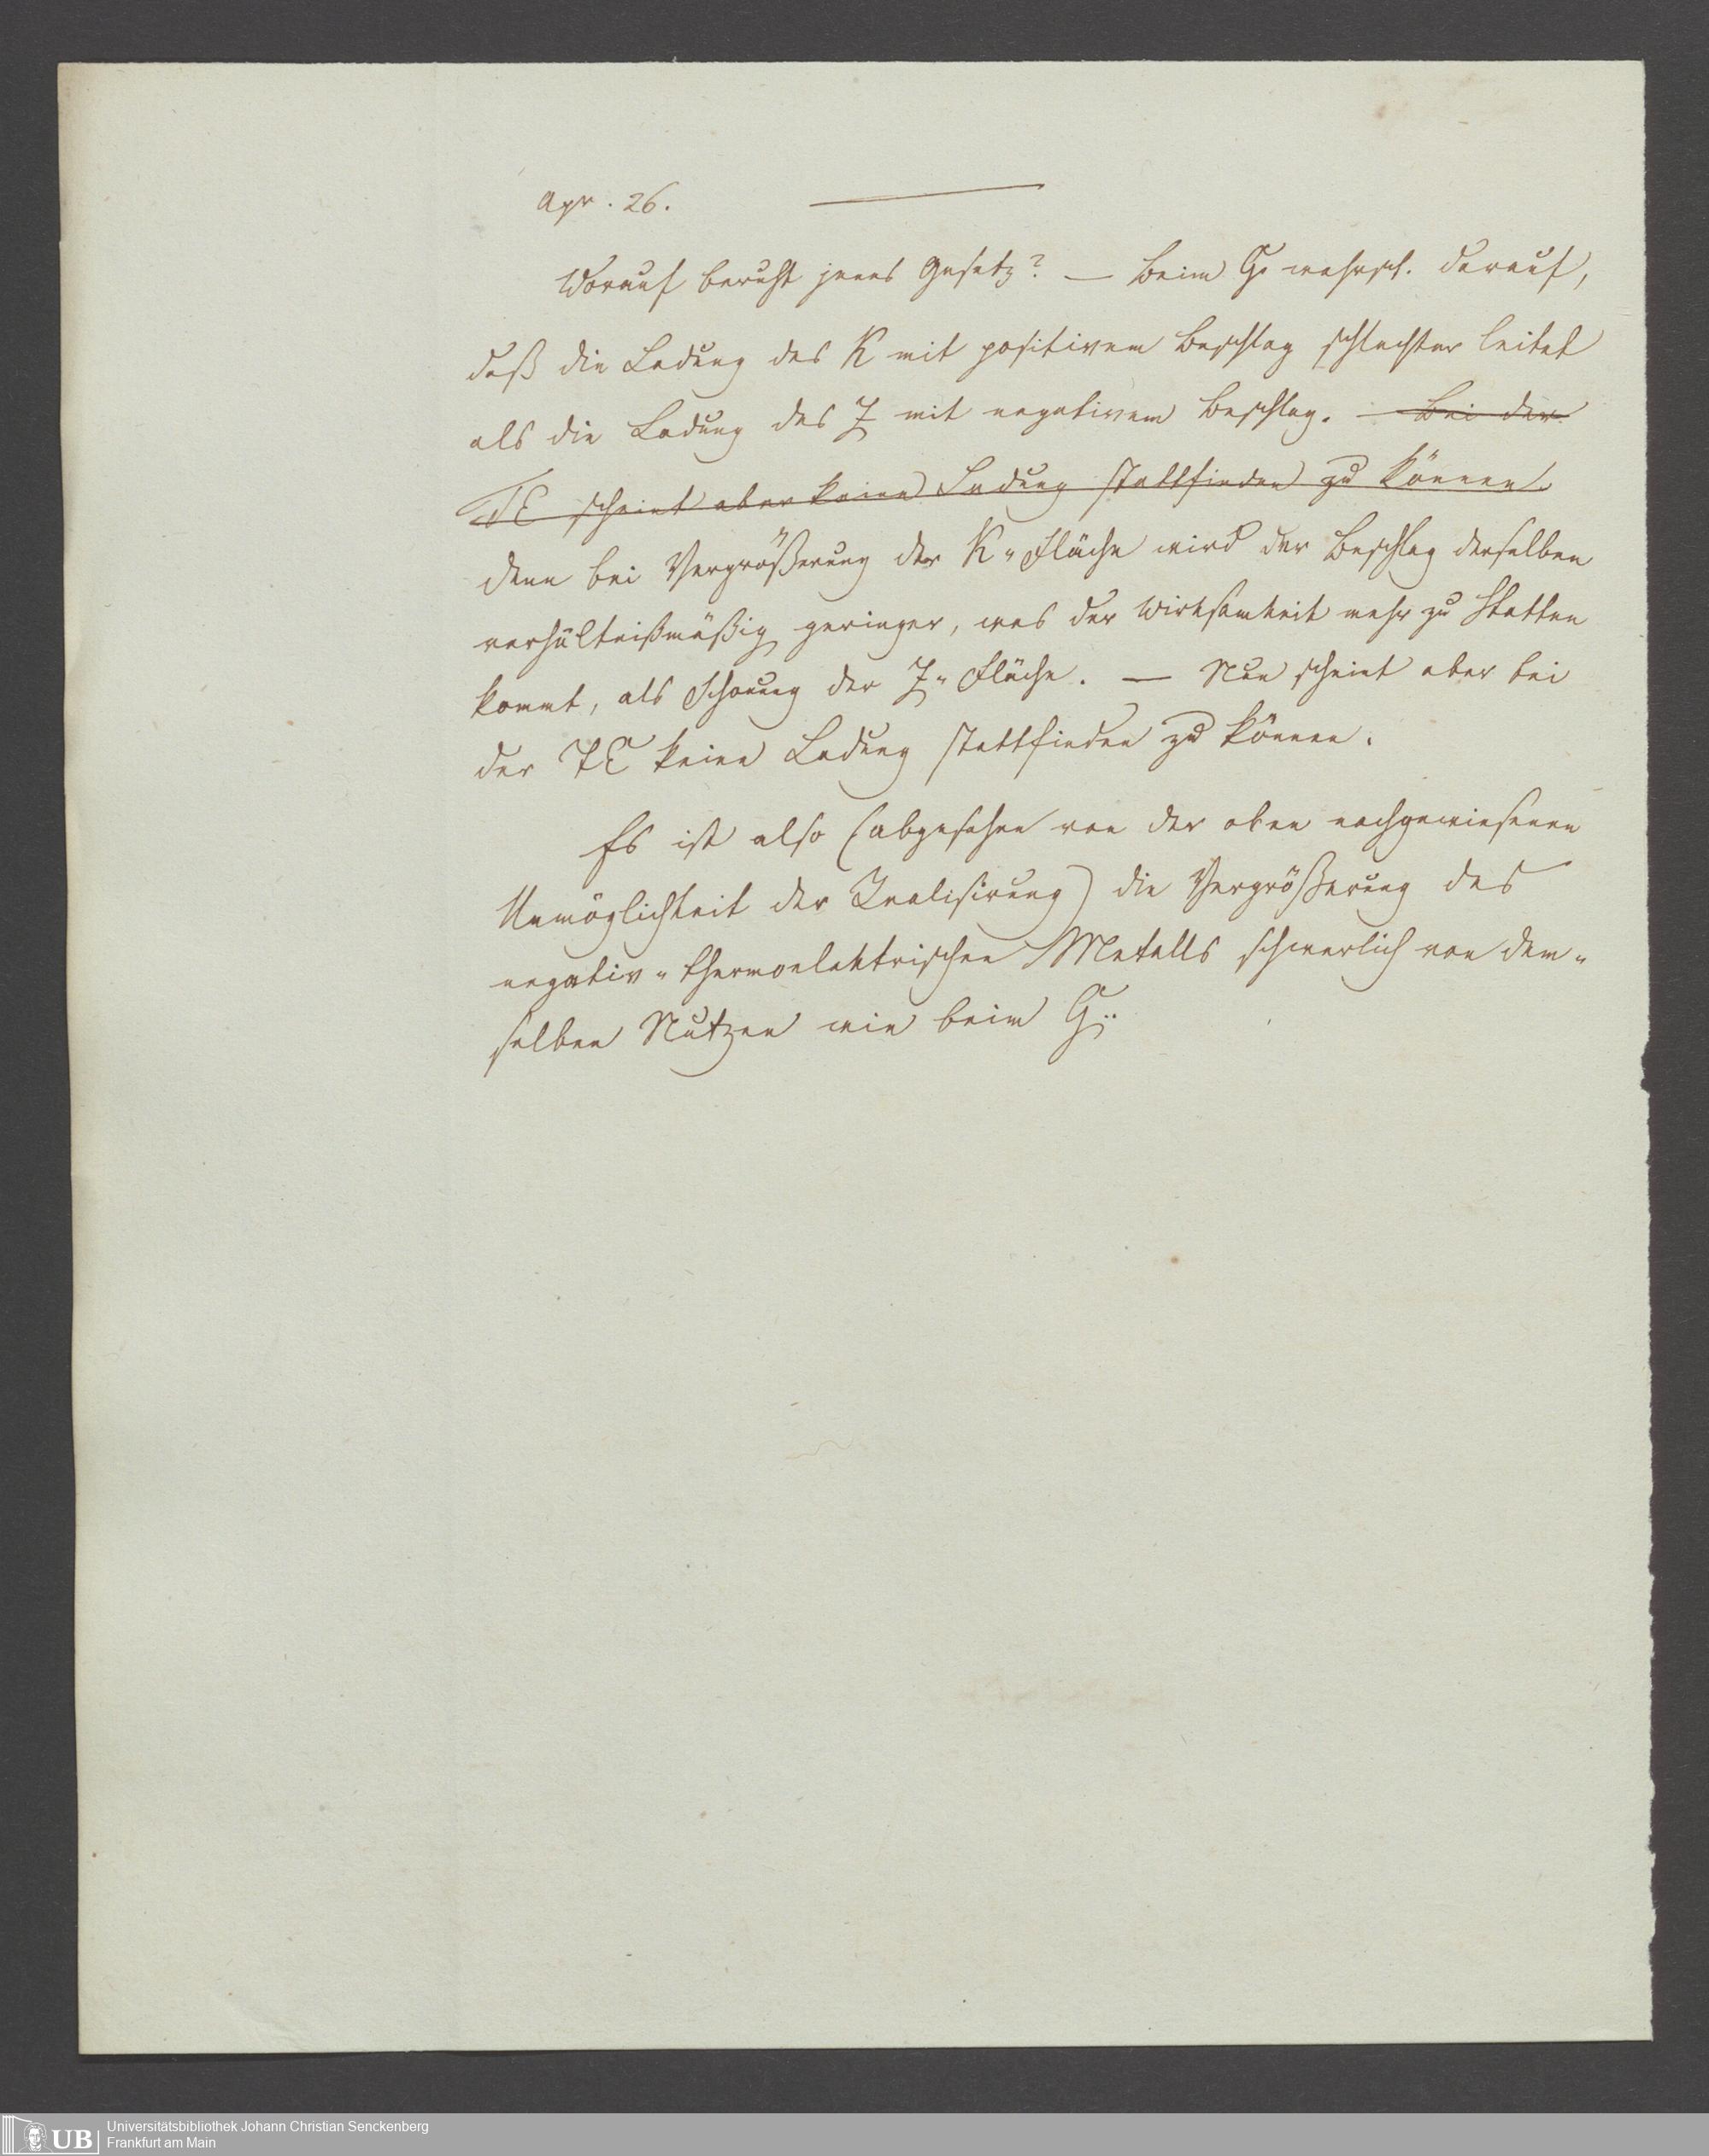 Apr. 26.
Worauf beruht jenes Gesetz? — Beim G. wahrsch. darauf,
daß die Ladung des K mit positivem Beschlag schlechter leitet
als die Ladung des Z mit negativem Beschlag. — Bei der
TE scheint aber keine Ladung stattfinden zu können.
denn bei Vergrößerung der K-Fläche wird der Beschlag derselben
verhältnißmäßig geringer, was der Wirksamkeit mehr zu Statten
kommt, als Schonung der Z-Fläche. — Nun scheint aber bei
der TE keine Ladung stattfinden zu können.
Es ist also (abgesehen von der oben nachgewiesenen
Unmöglichkeit der Realisirung) die Vergrößerung des
negativ-thermoelektrischen Metalls schwerlich von dem-
selben Nutzen wie beim G.
UB Universitätsbibliothek Johann Christian Senckenberg
Frankfurt am Main